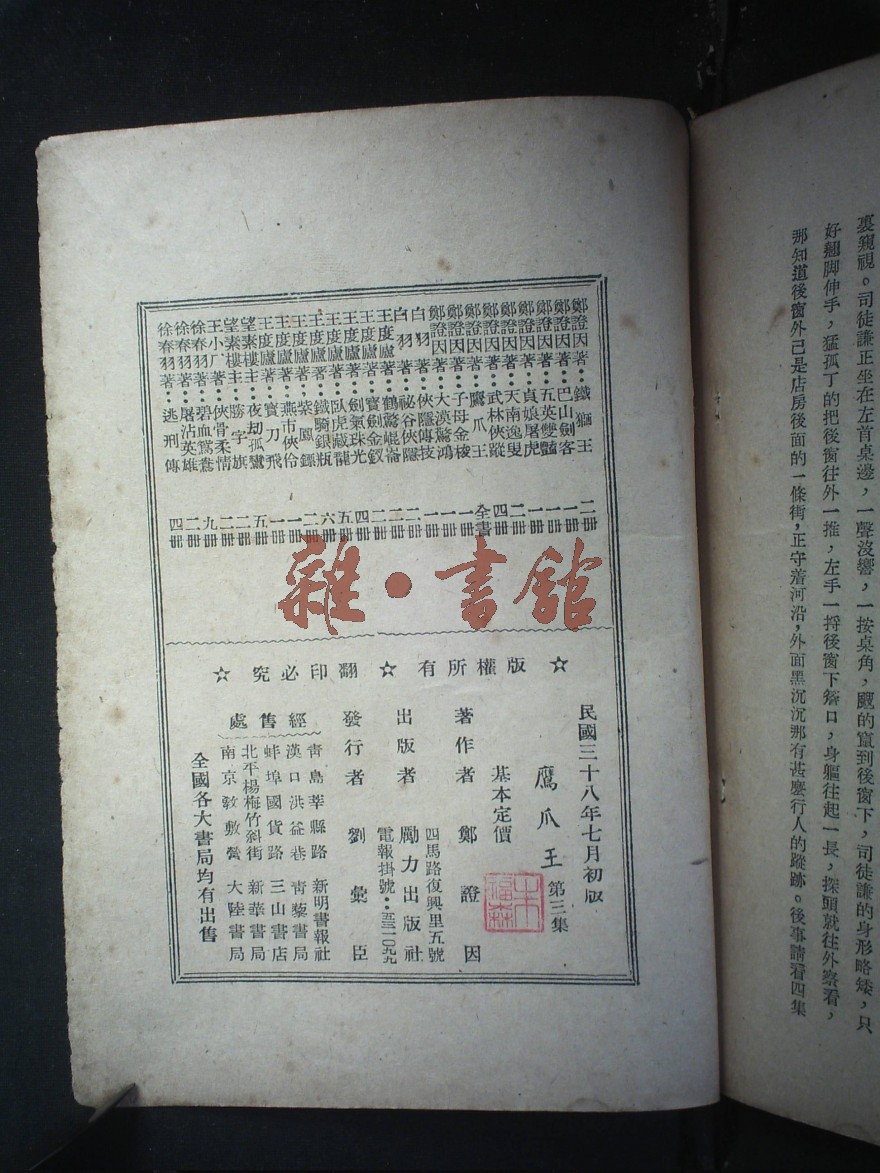 裏窺視。司徒謙正坐在左首桌邊,一聲沒響,一按桌角,颼的竄到後窗下,司徒謙的身形略矮,只
好翹脚伸手,猛孤丁的把後窗往外一推,左手一捋後窗下簷口,身軀往起一長,探頭就往外察看,
那知道後窗外已是店房後面的一條街,正守着河沿,外面黑沉沉那有甚麽行人的蹤跡。後事請看四集
鄭證因著:鐵獅王 二冊
鄭證因著:巴山劍客 一冊
鄭證因著:五英雙豔 一冊
鄭證因著:貞娘屠虎 一冊
鄭證因著:天南逸叟 二冊
鄭證因著:武林俠蹤 四冊
鄭證因著:鷹爪王 全書
鄭證因著:子母金梭 一冊
鄭證因著:大漠驚鴻 一冊
白羽著:俠隱傳技 二冊
白羽著:祕谷俠隱 二冊
王度廬著:鶴驚崑崙 四冊
王度廬著:寶劍金釵 二冊
王度廬著:劍氣珠光 四冊
王度廬著:臥虎藏龍 五冊
王度廬著:鐵騎銀瓶 六冊
王度廬著:紫鳳鏢 二冊
王度廬著:燕市俠伶 一冊
王度廬著:寶刀飛 一冊
望素樓主:夜劫孤鸞 五冊
望素樓主:勝字旗 二冊
王小厂著:俠骨柔情 二冊
徐春羽著:碧血鴛鴦 九冊
徐春羽著:屠沽英雄 二冊
徐春羽著:逃刑傳 四冊
雜·書館
☆ 版權所有 ☆ 翻印必究 ☆
民國三十八年七月初版
鷹爪王 第三集
基本定價
著作者 鄭證因
四馬路復興里五號
出版者 勵力出版社
電報掛號:五三一〇九九
發行者 劉彙臣
經售處
青島莘縣路 新明書報社
漢口洪益巷 青藜書局
蚌埠國貨路 三山書店
北平楊梅竹斜街 新華書局
南京敎敷營 大陸書局
全國各大書局均有出售